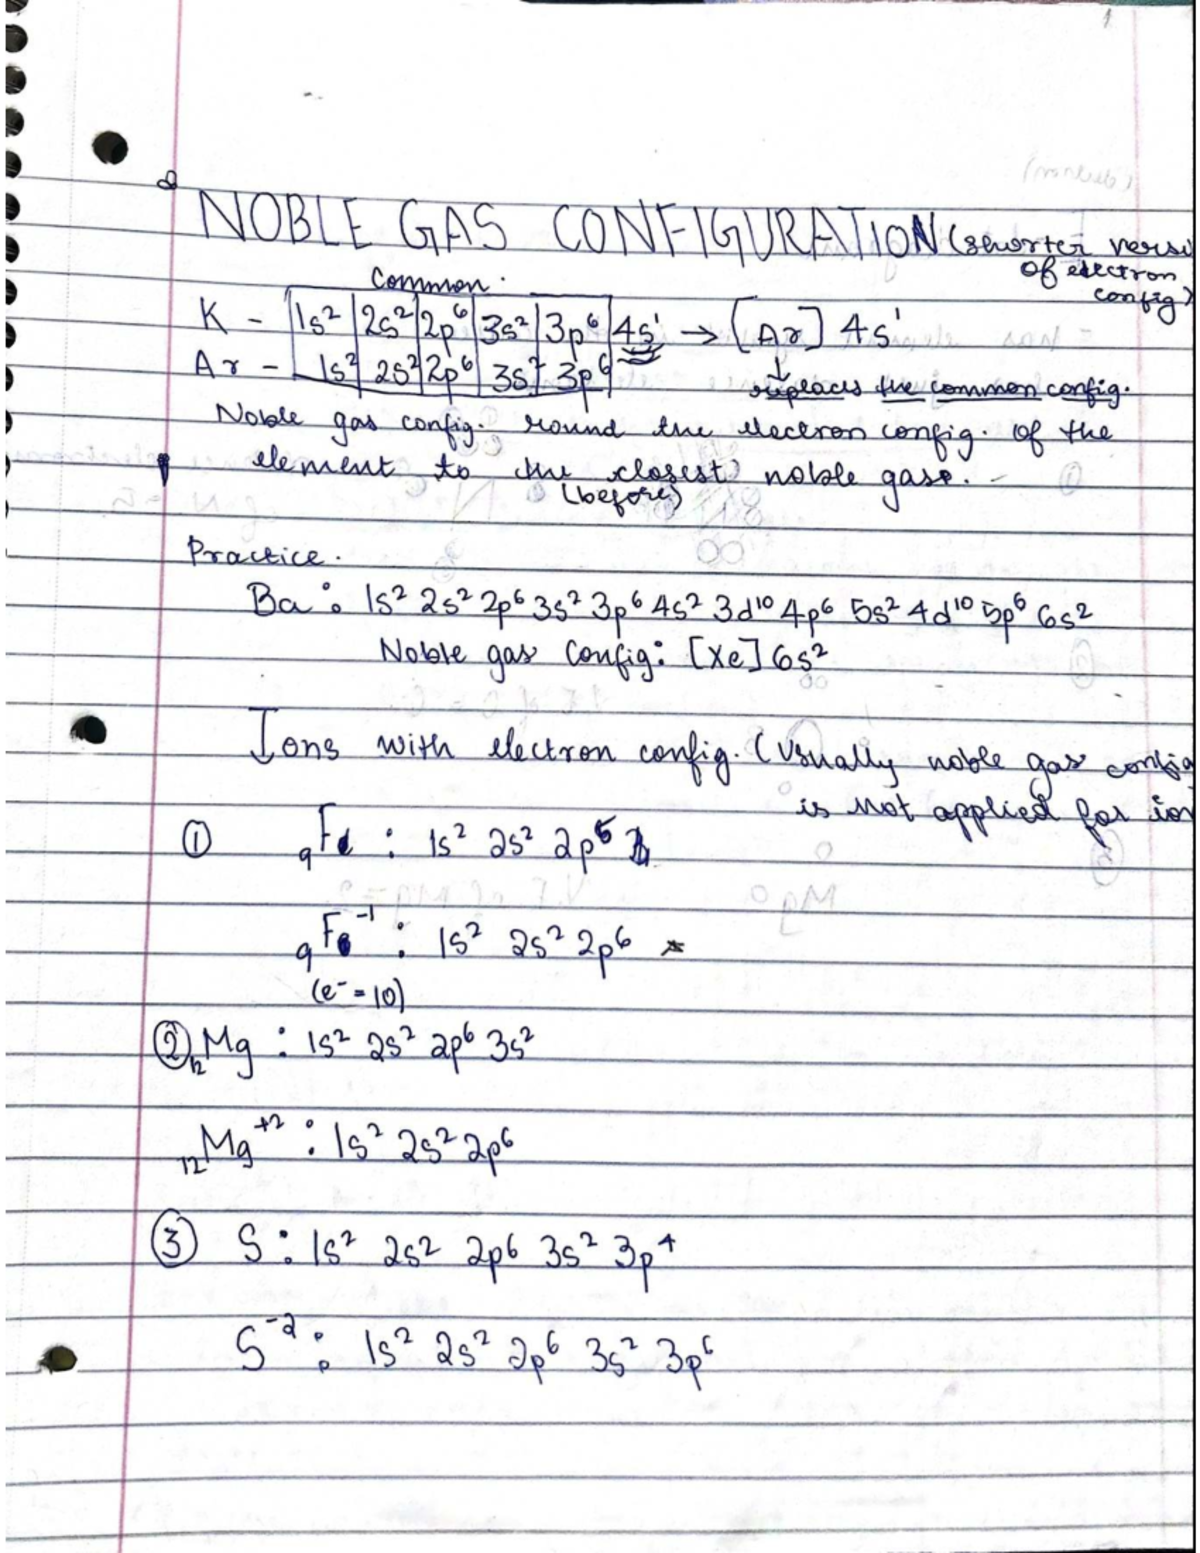 1
NOBLE GAS CONFIGURATION (shorter versi
of electron
config)
Common.
K - 1s² 2s² 2p⁶ 3s² 3p⁶ 4s¹ → [Ar] 4s¹
Ar - 1s² 2s² 2p⁶ 3s² 3p⁶
↓
replaces the common config.
Noble gas config. round the electron config. of the
element to the closest noble gas.
(before)
Practice.
Ba : 1s² 2s² 2p⁶ 3s² 3p⁶ 4s² 3d¹⁰ 4p⁶ 5s² 4d¹⁰ 5p⁶ 6s²
Noble gas Config: [Xe] 6s²
Ions with electron config. (Usually noble gas config
is not applied for ion
① ₉F : 1s² 2s² 2p⁵
₉F⁻¹ : 1s² 2s² 2p⁶
(e⁻ = 10)
② ₁₂Mg : 1s² 2s² 2p⁶ 3s²
₁₂Mg⁺² : 1s² 2s² 2p⁶
③ S : 1s² 2s² 2p⁶ 3s² 3p⁴
S⁻² : 1s² 2s² 2p⁶ 3s² 3p⁶